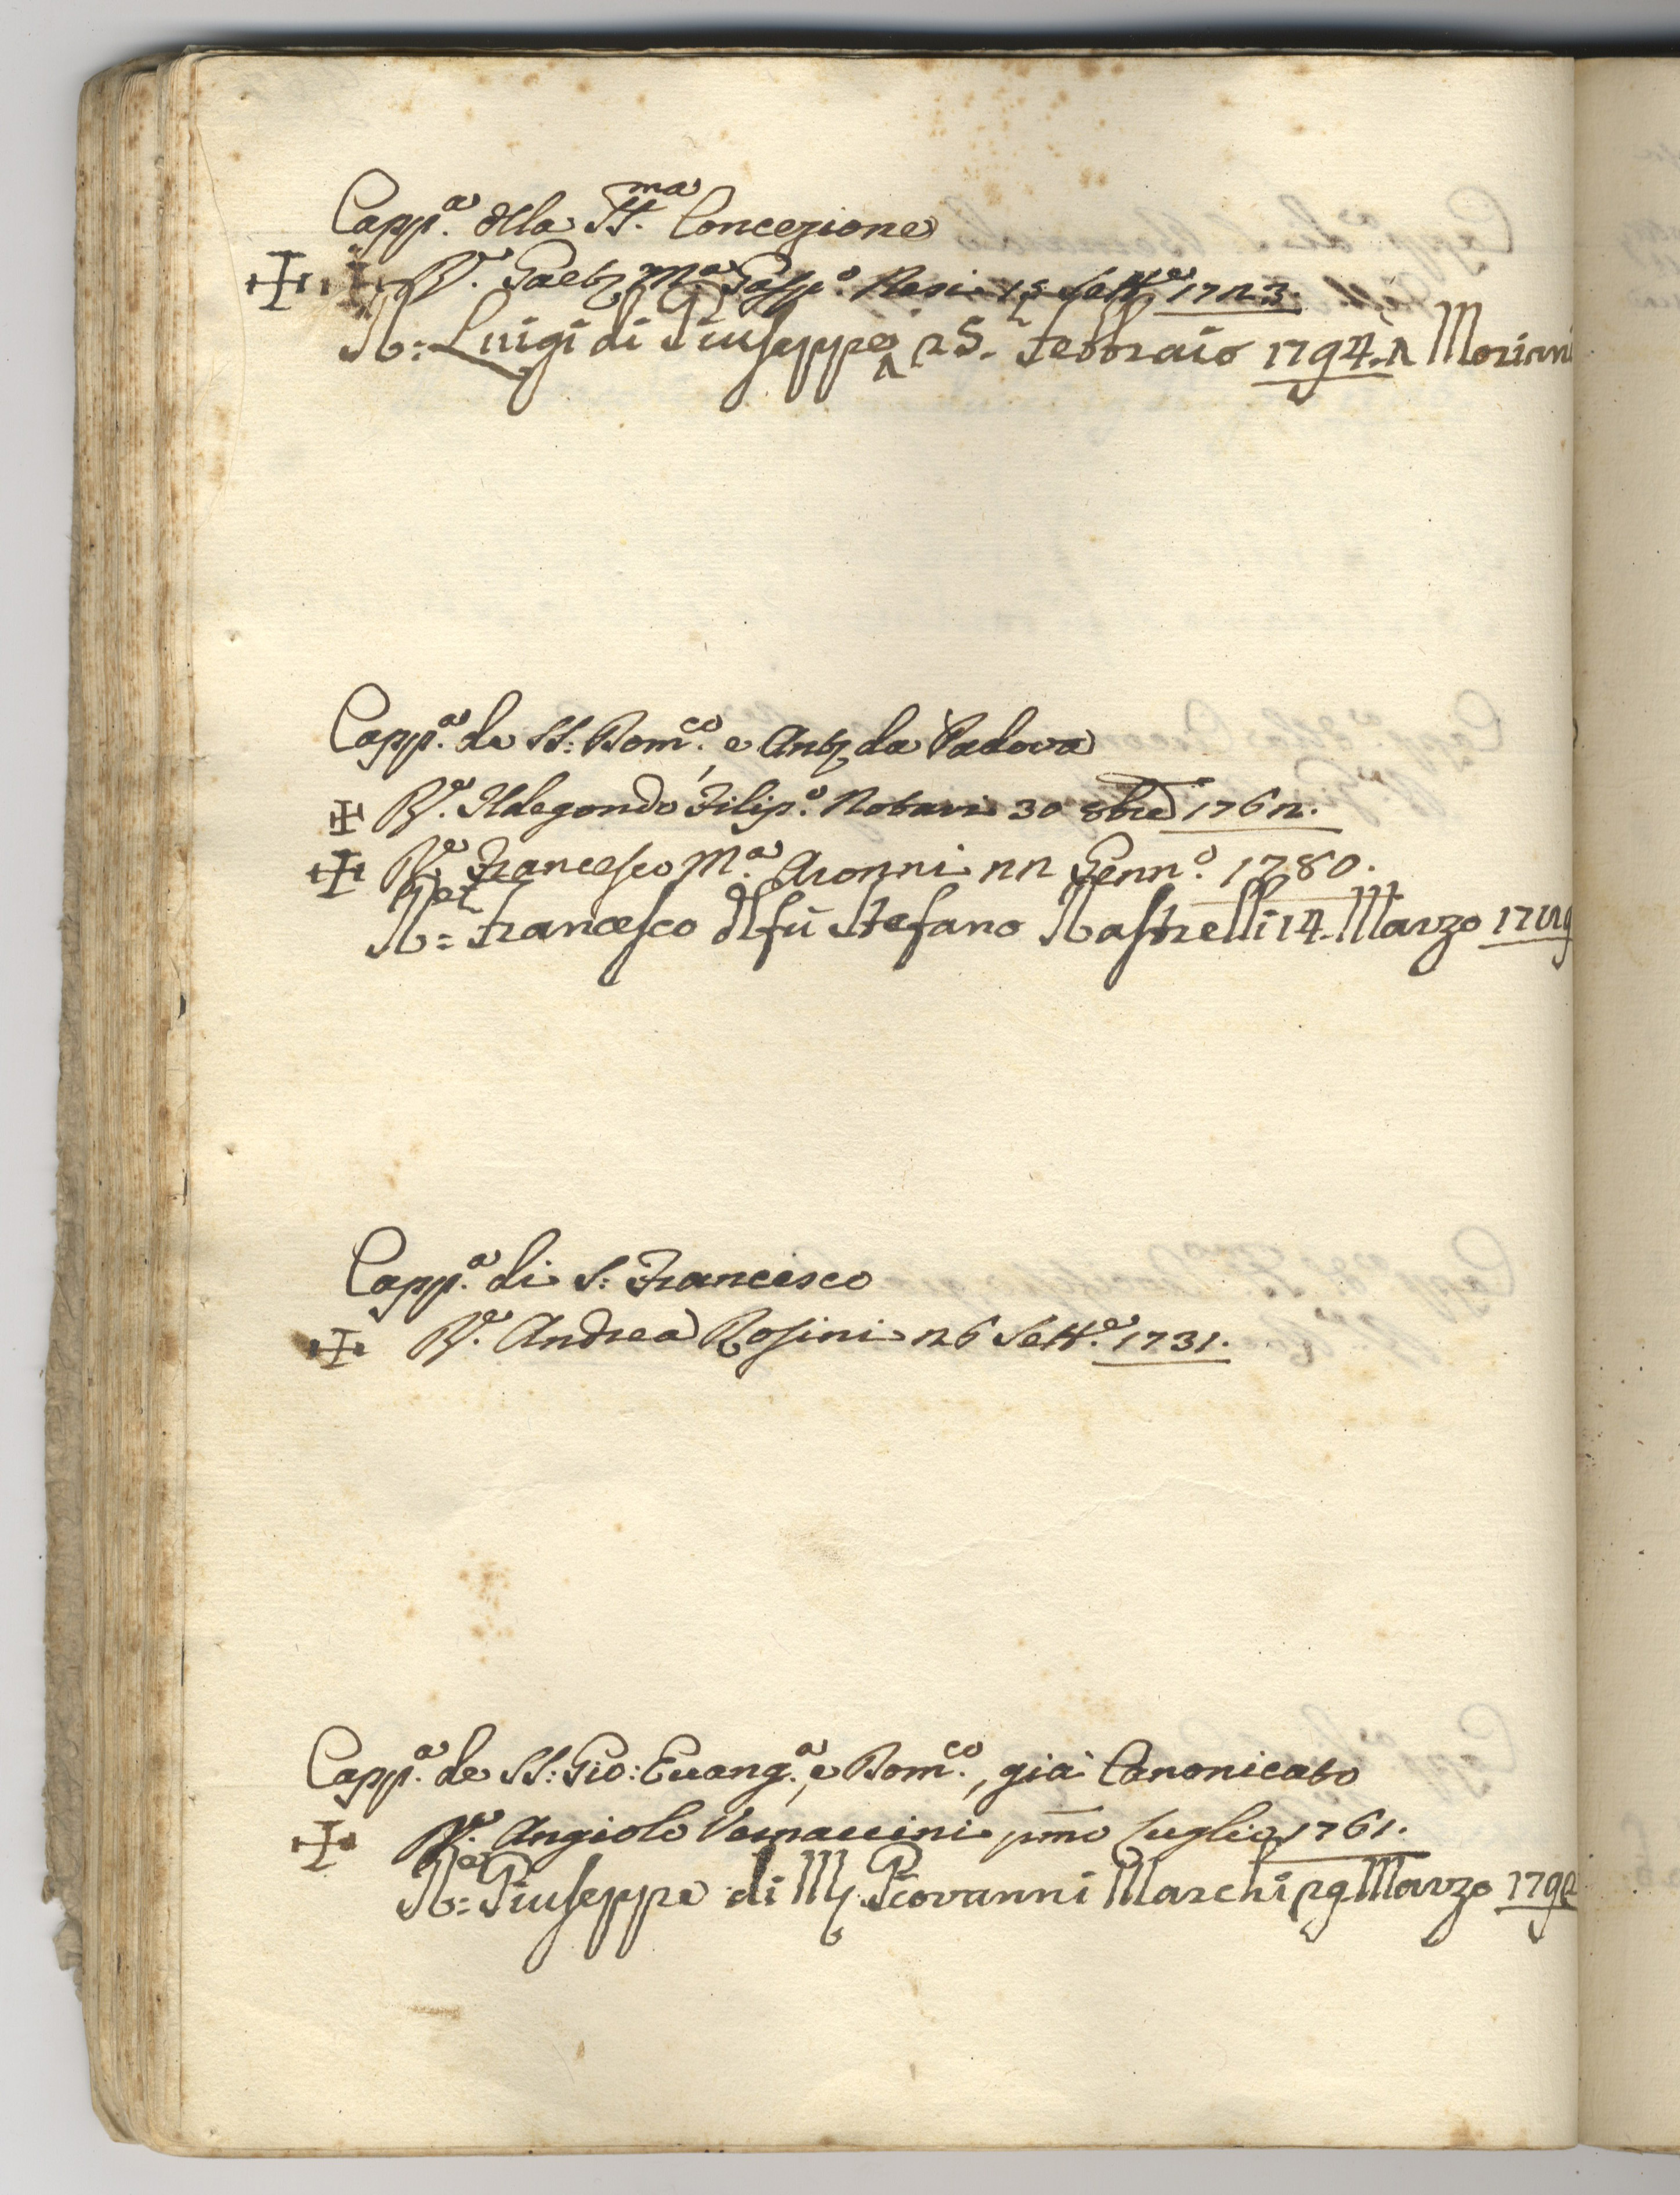 Capp.ª della SS.ma Concezione
R.e Gaet.o M.ª Gasp.o Resi 15 Sett.e 1723.
R: Luigi di Giuseppe ^ 25. Febbraio 1794. ^ Morian
Capp.ª de SS: Dom.co, e Ant.o da Padova
R.e Ildegondo Filip.o Notari 30 8bre 1762.
R.e Francesco M.ª 22 Genn.o 1780.
R: Francesco del fù Stefano Rastrelli 14 Marzo
Capp.ª di S: Francesco
R.e Andrea Rosini 26 Sett.e 1731.
Capp.ª de SS: Gio: Evang.ª, e Dom.co, già Canonicato
R.e Angiolo Vernaccini pmo Luglio 1761.
R: Giuseppe di Giovanni Marchi 29 Marzo